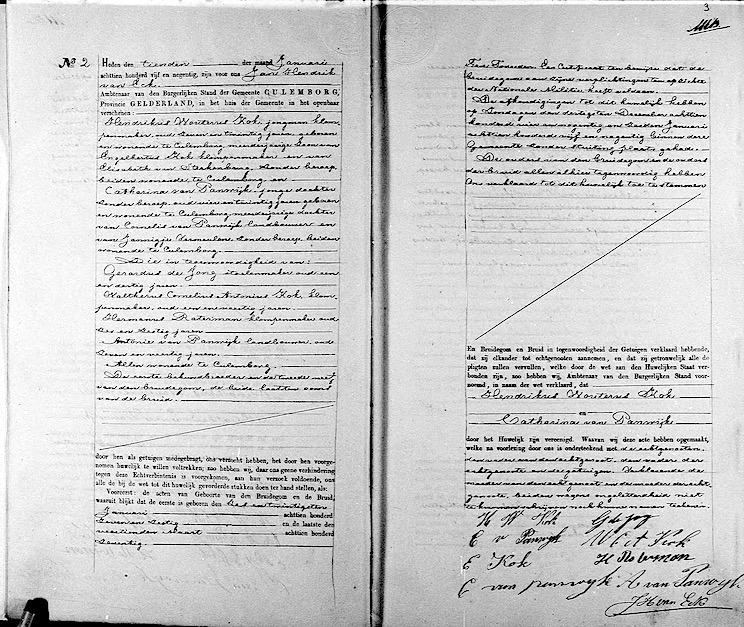 No 2
Heden den tienden der maand Januari
achttien honderd vijf en negentig, zijn voor ons Jan Hendrik
van Eck,
Ambtenaar van den Burgerlijken Stand der Gemeente CULEMBORG,
Provincie GELDERLAND, in het huis der Gemeente in het openbaar
verschenen:
Hendrikus Wouterus Kok, jongman klom-
penmaker, oud zeven en twintig jaren geboren
en wonende te Culemborg meerderjarige zoon van
Engelbertus Kok klompenmaker en van
Elisabeth van Sterkenburg, zonder beroep,
beiden wonende te Culemborg, en
Catharina van Panwijk, jonge dochter
zonder beroep, oud vier en twintig jaren geboren
en wonende te Culemborg, meerderjarige dochter
van Cornelis van Panwijk landbouwer en
van Jannigje Vermeulen, zonder beroep, beiden
wonende te Culemborg
Die in tegenwoordigheid van:
Gerardus de Jong stoelenmaker oud een
en dertig jaren
Waltherus Cornelius Antonius Kok, klom-
penmaker, oud een en veertig jaren
Hermanus Raterman klompenmaker oud
zes en zestig jaren
Antonie van Panwijk landbouwer, oud
zeven en veertig jaren.
Allen wonende te Culemborg
De eerste behuwdbroeder en de tweede neef
van den bruidegom, de beide laatsten ooms
van de bruid.
door hen als getuigen medegebragt, ons verzocht hebben, het door hen voorge-
nomen huwelijk te willen voltrekken; zoo hebben wij, daar ons geene verhindering
tegen deze Echtverbintenis is voorgekomen, aan hun verzoek voldoende, ons
alle de bij de wet tot dit huwelijk gevorderde stukken doen ter hand stellen, als:
Vooreerst: de acten van Geboorte van den Bruidegom en de Bruid,
waaruit blijkt dat de eerste is geboren den
Januari achttien honderd
zeven en zestig en de laatste den
veertienden Maart achttien honderd
zeventig.
3
Ten Tweeden: Een Certificaat ten bewijze dat de
bruidegom aan zijne verplichtingen ten opzichte
der Nationale Militie heeft voldaan.
De afkondigingen tot dit huwelijk hebben
op Zondagen den dertigsten December achttien
honderd vier en negentig en zesden Januari
achttien honderd vijf en negentig binnen deze
Gemeente zonder stuiting plaats gehad.
De ouders van den bruidegom en de ouders
der bruid allen alhier tegenwoordig hebben
ons verklaard tot dit huwelijk toe te stemmen
En Bruidegom en Bruid in tegenwoordigheid der Getuigen verklaard hebbende,
dat zij elkander tot echtgenooten aannemen, en dat zij getrouwelijk alle de
pligten zullen vervullen, welke door de wet aan den Huwelijken Staat ver-
bonden zijn, zoo hebben wij, Ambtenaar van den Burgerlijken Stand voor-
noemd, in naam der wet verklaard, dat
Hendrikus Wouterus Kok
en
Catharina van Panwijk
door het Huwelijk zijn vereenigd. Waarvan wij deze acte hebben opgemaakt,
welke na voorlezing door ons is onderteekend met de echtgenooten,
den vader van den echtgenoot, den vader der
echtgenoote en de getuigen. Verklarende de
moeder van den echtgenoot en de moeder der echt-
genoote, beiden volgens ongeletterdheid niet
te kunnen schrijven noch hunnen naam teekenen.
H W Kok G de Jong
C v Panwyk W C A Kok
E Kok H Raterman
C van panwyk A van Panwyk
JH van Eck